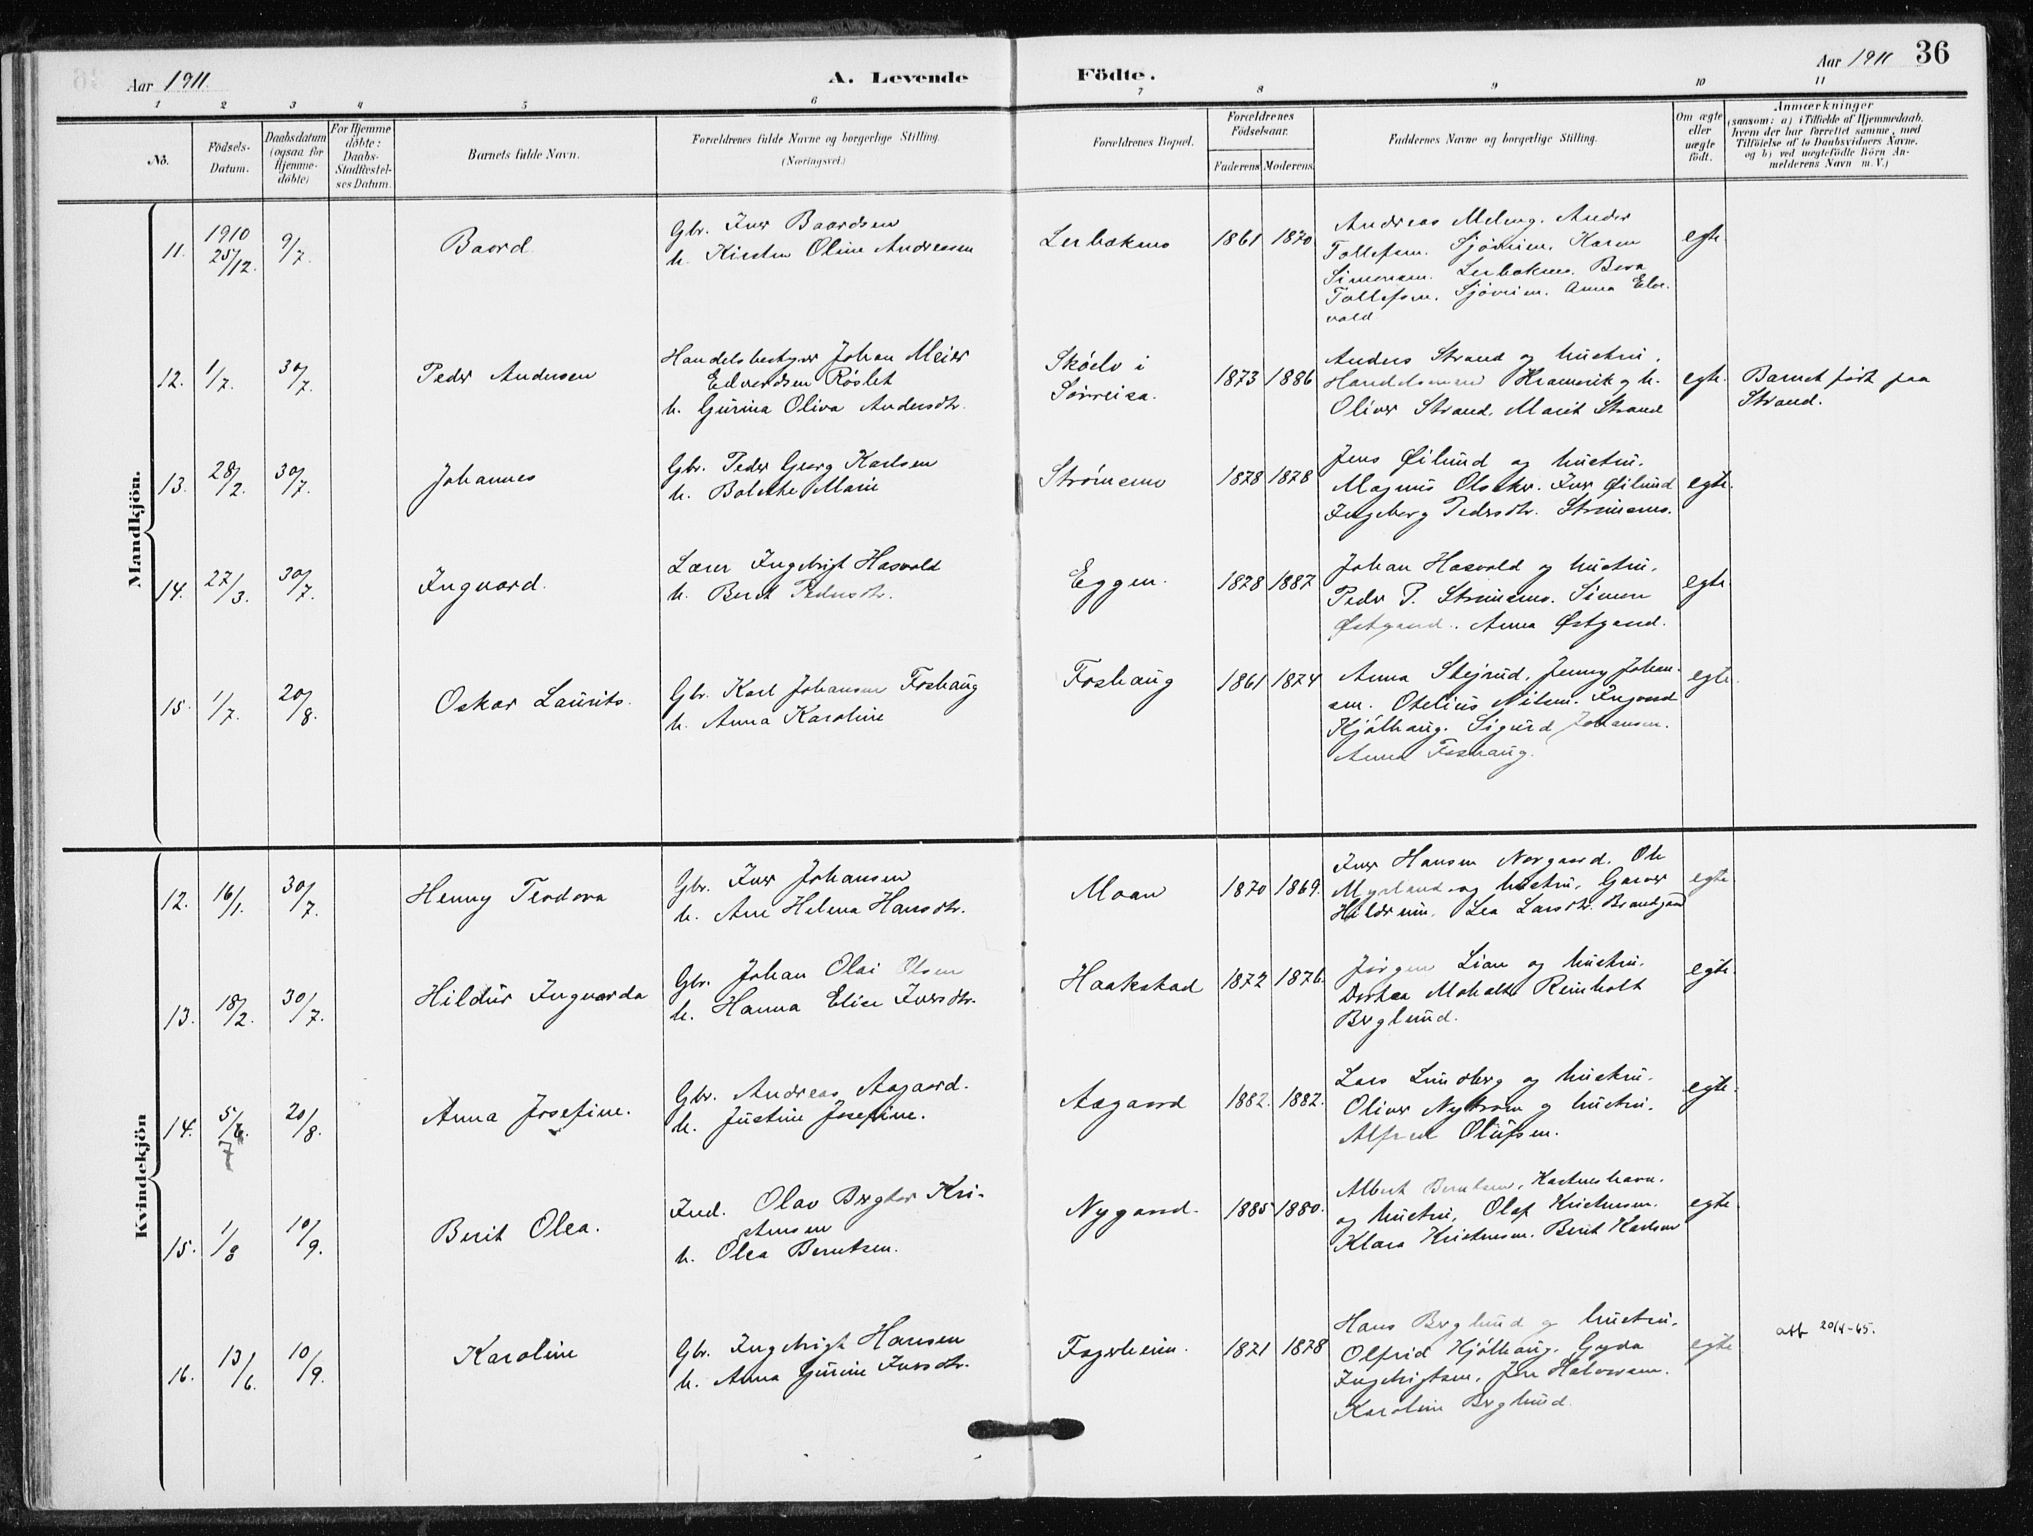 Aar 1911.
A. Levende
Födte.
Aar 1911
36
1 2 3 4 5 6 7 8 9 10 11
No.
Födsels-Datum.
Daabsdatum (ogsaa for Hjemme-döbte)
For Hjemme döbte: Daabs-Stadfæstel-ses Datum.
Barnets fulde Navn.
Forældrenes fulde Navne og borgerlige Stilling.
(Næringsvei.)
Forældrenes Bopæl.
Forældrenes Födselsaar.
Faderens Moderens
Faddernes Navne og borgerlige Stilling.
Om ægte eller uægte födt.
Anmærkninger
(saasom: a) i Tilfælde af Hjemmedaab, hvem der har forrettet samme, med Tilföielse af to Daabsvidners Navne, og b) ved uægtefödte Börn An-melderens Navn m. V.)
Mandkjön.
11. 1910 25/12. 9/7. Baard.
Gbr. Iver Baardsen
h. Kirsten Oline Andreassen
Lerbakmo 1861 1870
Andreas Meling. Anders
Tollefsen. Sjøveien. Karen
Simonsen. Lerbakmo. Bera
Tollefsen. Sjøveien. Anna Elve-
vold
egte.
12. 1/7. 30/7. Peder Andersen
Handelsbestyrer Johan Meier
Edvardsen Røslet
h. Gurina Oliva Andersdtr.
Skøelv i
Sørreisa.
1873 1886
Anders Strand og hustru.
Handelsmand Kramvik og h.
Oliver Strand. Marit Strand
egte.
Barnet født paa
Strand.
13. 28/2. 30/7. Johannes
Gbr. Peder Georg Karlsen
h. Bolette Marie
Strømsmo 1878 1878
Jens Øilund og hustru.
Magnus Olsskr. Iver Øilund
Ingeborg Pedersdtr. Strømsmo.
egte.
14. 27/3. 30/7. Ingvard.
Lærer Ingebrigt Hasvold
h. Berit Pedersdtr.
Eggen. 1878 1887
Johan Hasvold og hustru.
Peder P. Strømsmo. Simon
Østgaard. Anna Østgaard.
egte.
15. 1/7. 20/8. Oskar Laurits.
Gbr. Karl Johansen Foshaug
h. Anna Karoline
Foshaug 1861 1874
Anna Skejrud, Jenny Johan-
sen. Otelius Nilsen. Ingvard
Kjølhaug. Sigurd Johansen.
Anna Foshaug.
egte.
Kvindekjön
12. 16/1. 30/7. Henny Teodora
Gbr. Iver Johansen
h. Ane Helena Hansdtr.
Moan 1870 1869.
Iver Hansen Norgaard. Ole
Myrland og hustru. Garver
Hildreim. Lea Larsdtr. Brandgaard
egte
13. 18/2. 30/7. Hildur Ingvarda
Gbr. Johan Olai Olsen
h. Hanna Elise Iversdtr.
Haakstad 1872 1876.
Jørgen Lian og hustru.
Dorthea Moholt Reinholt
Berglund.
egte.
14. 5/6. 7 20/8. Anna Josefine.
Gbr. Andreas Aagaard.
h. Justine Josefine.
Aagaard 1882. 1882.
Lars Lundberg og hustru.
Oliver Nystrøm og hustru.
Alfred Olufsen.
egte.
15. 1/8 10/9. Berit Olea.
Ind. Olav Bergtor Kri-
stensen
h. Olea Berntsen.
Nygaard. 1885 1880.
Albert Berntsen, Kastneshavn.
og hustru, Olaf Kristensen.
Klara Kristensen. Berit Karlsen
egte.
16. 13/6. 10/9. Karoline
Gbr. Ingebrigt Hansen
h. Anna Gurine Iversdtr.
Fagerheim. 1871 1878
Hans Berglund og hustru.
Olfrid Kjølhaug. Gyda
Ingebrigtsen, Jens Halvorsen.
Karoline Berglund.
egte
att 20/4-65.